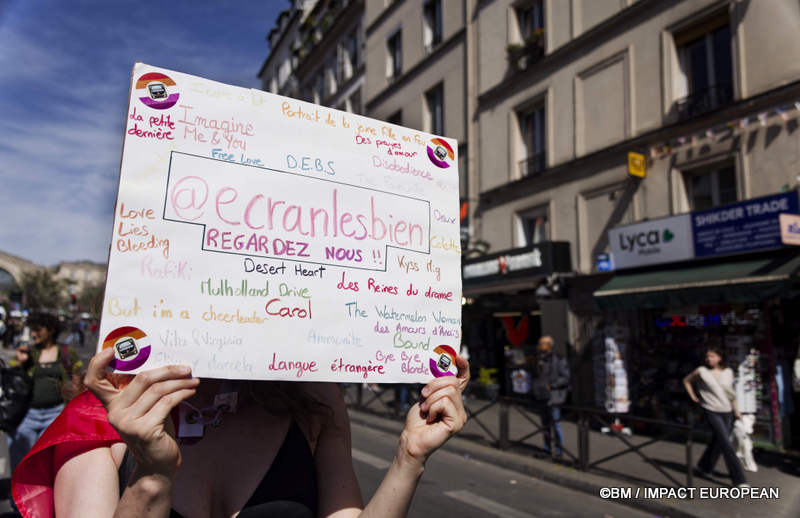 I care a lot
Portrait de la jeune fille en feu
La petite
dernière
Imagine
Me & You
Des preuves
d'amour
Disobedience
Free Love
D.E.B.S
@ecranlesbien
REGARDEZ NOUS !!
Love
Lies
Bleeding
Colette
Desert Heart
Kyss Mig
Rafiki
Mulholland Drive
Les Reines du drame
But i'm a cheerleader
Carol
The Watermelon Woman
des Amours d'Anaïs
Vita & Virginia
Ammonite
Bound
Bye Bye
Blondie
Langue étrangère
Lyca
Mobile
SHIKDER TRADE
©BM / IMPACT EUROPEAN